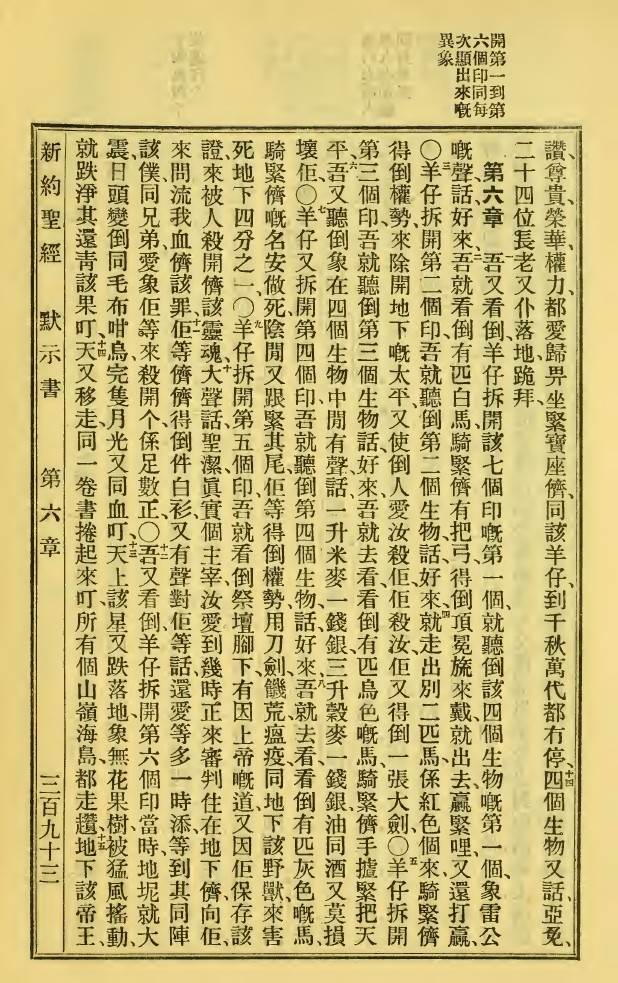 開第一到第
六個印同每
次顯出來嘅
異象
讚、尊貴、榮華、權力、都愛歸畀坐緊寶座儕、同該羊仔、到千秋萬代都冇停、十四四個生物又話、亞冕、
二十四位長老又仆落地跪拜、
第六章 一吾又看倒羊仔拆開該七個印嘅第一個、就聽倒該四個生物嘅第一個、象雷公
嘅聲話、好來、二吾就看倒有匹白馬、騎緊儕有把弓、得倒頂冕旒來戴、就出去、贏緊哩、又還打贏、
〇三羊仔拆開第二個印、吾就聽倒第二個生物話、好來、四就走出別二匹馬、係紅色個、來騎緊儕
得倒權勢、來除開地下嘅太平、又使倒人愛汝殺佢、佢殺汝、佢又得倒一張大劍、〇五羊仔拆開
第三個印、吾就聽倒第三個生物話、好來、吾就去看、看倒有匹烏色嘅馬、騎緊儕手㨪緊把天
平、六吾又聽倒象在四個生物中閒有聲話、一升米麥一錢銀、三升穀麥一錢銀、油同酒又莫損
壞佢、〇七羊仔又拆開第四個印、吾就聽倒第四個生物話、好來、八吾就去看、看倒有匹灰色嘅馬、
騎緊儕嘅名安做死、陰閒又跟緊其尾、佢等得倒權勢、用刀劍、饑荒、瘟疫、同地下該野獸、來害
死地下四分之一、〇九羊仔拆開第五個印、吾就看倒祭壇腳下、有因上帝嘅道、又因佢保存該
證、來被人殺開儕該靈魂、十大聲話、聖潔眞實個主宰、汝愛到幾時正來審判住在地下儕、向佢
來問流我血儕該罪、十一佢等儕儕得倒件白衫、又有聲對佢等話、還愛等多一時添、等到其同陣
該僕、同兄弟、愛象佢等來殺開个、係足數正、〇十二吾又看倒羊仔拆開第六個印、當時地坭就大
震、日頭變倒同毛布咁烏、完隻月光又同血叮、十三天上該星又跌落地、象無花果樹、被猛風搖動、
就跌淨其還青該果叮、十四天又移走、同一卷書捲起來叮、所有個山嶺海島、都走趲、十五地下該帝王、
新約聖經 默示書 第六章 三百九十三